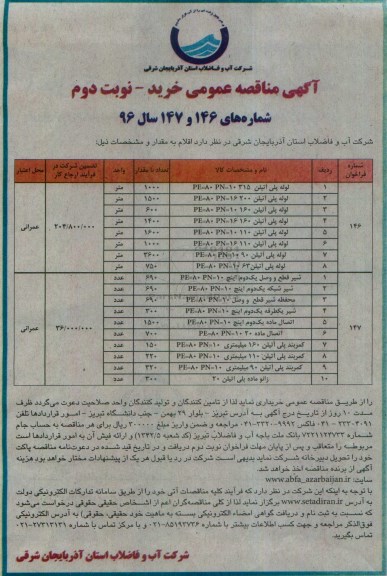 شرکت آب و فاضلاب استان آذربایجان شرقی
آگهی مناقصه عمومی خرید - نوبت دوم
شماره‌های ۱۴۶ و ۱۴۷ سال ۹۶
شرکت آب و فاضلاب استان آذربایجان شرقی در نظر دارد اقلام به مقدار و مشخصات ذیل:
شماره فراخوان ردیف نام و مشخصات کالا تعداد تا مقدار واحد تضمین شرکت در فرآیند ارجاع کار محل اعتبار
۱۴۶ ۲۰۴/۸۰۰/۰۰۰ عمرانی
۱ لوله پلی اتیلن ۳۱۵ PE-۸۰ PN-۱۰ ۱۰۰۰ متر
۲ لوله پلی اتیلن ۲۰۰ PE-۸۰ PN-۱۶ ۱۵۰۰ متر
۳ لوله پلی اتیلن ۱۶۰ PE-۸۰ PN-۱۰ ۶۰۰ متر
۴ لوله پلی اتیلن ۱۶۰ PE-۸۰ PN-۱۶ ۱۴۰۰ متر
۵ لوله پلی اتیلن ۱۱۰ PE-۸۰ PN-۱۰ ۱۶۰۰ متر
۶ لوله پلی اتیلن ۱۱۰ PE-۸۰ PN-۱۶ ۱۰۰۰ متر
۷ لوله پلی اتیلن ۹۰ PE-۸۰ PN-۱۰ ۳۶۰۰ متر
۸ لوله پلی اتیلن ۶۳ PE-۸۰ PN-۱۰ ۷۵۰ متر
۱۴۷ ۳۶/۰۰۰/۰۰۰ عمرانی
شیر قطع و وصل یک‌دوم اینچ PE-۸۰ PN-۱۰ ۶۹۰ عدد
۲ شیر شبکه یک‌دوم PE-۸۰ PN-۱۰ ۶۹۰ عدد
۳ محفظه شیر قطع و وصل PE-۸۰ PN-۲۰ ۶۹۰ عدد
۴ شیر یکطرفه یک‌دوم اینچ PE-۸۰ PN-۱۰ ۳۰۰ عدد
۵ اتصال ماده یک‌دوم اینچ PE-۸۰ PN-۱۰ ۱۵۰۰ عدد
۶ اتصال ماده ۲۰ PE-۸۰ PN-۱۰ ۷۰۰ عدد
۷ کمربند پلی اتیلن ۱۶۰ میلیمتری PE-۸۰ PN-۱۰ ۱۵۰ عدد
۸ کمربند پلی اتیلن ۱۱۰ میلیمتری PE-۸۰ PN-۱۰ ۲۲۰ عدد
۹ کمربند پلی اتیلن ۹۰ میلیمتری PE-۸۰ PN-۱۰ ۳۲۰ عدد
۱۰ زانو ماده پلی اتیلن ۲۰ ۳۰۰ عدد
را از طریق مناقصه عمومی خریداری نماید لذا از تامین کنندگان و تولید کنندگان واجد صلاحیت دعوت می‌گردد ظرف
مدت ۱۰ روز از تاریخ درج آگهی به آدرس تبریز - بلوار ۲۹ بهمن - جنب دانشگاه تبریز - امور قراردادها تلفن
مراجعه و ضمن واریز مبلغ ۲۰۰۰۰۰ ریال برای هر مناقصه به حساب جام
بانک ملت باجه آب و فاضلاب تبریز و ارائه فیش آن به امور قراردادها است
مربوطه را متعاقب و پس از پایان مهلت فراخوان نوبت دوم دریافت و در تاریخ قید شده در دعوت‌نامه مناقصه پاکت
خود را تحویل دبیرخانه شرکت نماید بدیهی است شرکت در رد یا قبول هر یک از پیشنهادات مختار خواهد بود هزینه
آگهی از برنده مناقصه اخذ خواهد شد.
سایت: www.abfa_azarbaijan.ir
با توجه به اینکه این شرکت در نظر دارد که فرآیند کلیه مناقصات آتی خود را از طریق سامانه تدارکات الکترونیکی دولت
به آدرس www.setadiran.ir برگزار نماید لذا از کلی مناقصه‌گران اعم از اشخاص حقیقی حقوقی درخواست می‌شود
که نسبت به ثبت نام و دریافت گواهی امضاء الکترونیکی بسته به ماهیت خود (حقیقی، حقوقی) به آدرس الکترونیکی
فوق‌الذکر مراجعه و جهت کسب اطلاعات بیشتر با شماره ۸۵۱۹۳۷۳۶-۰۲۱ و یا مرکز تماس با شماره ۲۷۳۱۳۱۳۱-۰۲۱
تماس بگیرید.
شرکت آب و فاضلاب استان آذربایجان شرقی